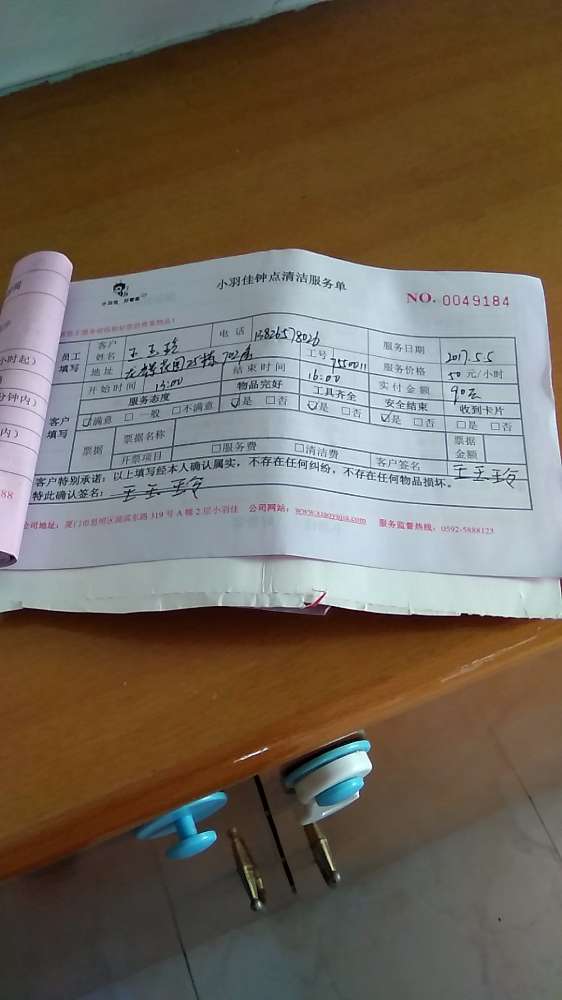 小羽佳钟点清洁服务单
小羽佳 好管家
NO. 0049184
员工填写 客户姓名 王玉玲 电话 13826578026 服务日期 2017.5.5
地址 龙雄花园25栋702房 工号 7550011 服务价格 50元/小时
开始时间 13:00 结束时间 16:00 实付金额 90元
客户填写 服务态度 物品完好 工具齐全 安全结束 收到卡片
☑满意 □一般 □不满意 ☑是 □否 ☑是 □否 ☑是 □否 □是 □否
票据 票据名称 票据金额
开票项目 □服务费 □清洁费 客户签名 王玉玲
客户特别承诺：以上填写经本人确认属实，不存在任何纠纷，不存在任何物品损坏。
特此确认签名：王玉玲
公司地址：厦门市思明区湖滨东路 319 号 A 楼 2 层小羽佳 公司网站：www.xiaoyujia.com 服务监督热线：0592-5888123
小时起）
分钟内）
内）
88